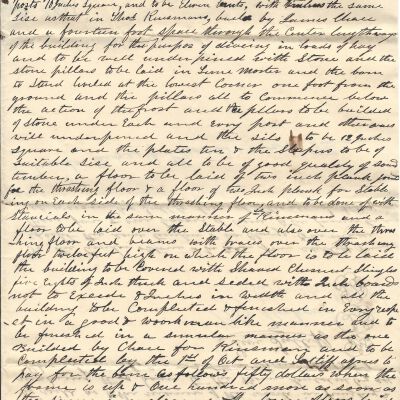 posts 10 Inches Square, and to be Eleven bents, with the same
size as that in Thos Kinsmans, built by James Chace
and a fourteen foot space through the Center lengthways
of the building for the purpos of driving in loads of hay
and to be well underpined with Stone and the
stone pillars to be laid in Lime Morter and the barn
to Stand level at the lowest Corner one foot from the
ground and the pillars all to Commence below
the action of the frost and the pillars to be builded
of Stone under Each and Every post and otherwise
well underpined and the sils to be 12 Inches
square and the plates ten & the to be of
suitable size and all to be of good Quality of sound
timber, a floor to be laid of two inch plank
for the thrashing floor & a floor of two Inch plank for Stabl
ing on Each side of the thrashing floor, and to be done of with
in the same manner of Kinsmans and a
floor to be laid over the Stable and also over the thras
hing floor and beams with braces over the thrashing
floor twelve feet high on which the floor is to be laid
the building to be Covered with Shaved Chesnut Shingles
five eights of Inch thick and seded with Inch boards
not to Exeede Inches in width and all the
building to be Completed & finished in Every resp
ect in a good & workman like manner and to
be finished in a simular manner to the one
Builded by Chace for Kinsman and to be
Completed by the 1st of Oct and agrees to
pay for the barn as follows fifty dollars when the
frame is up & One hundred more as soon as